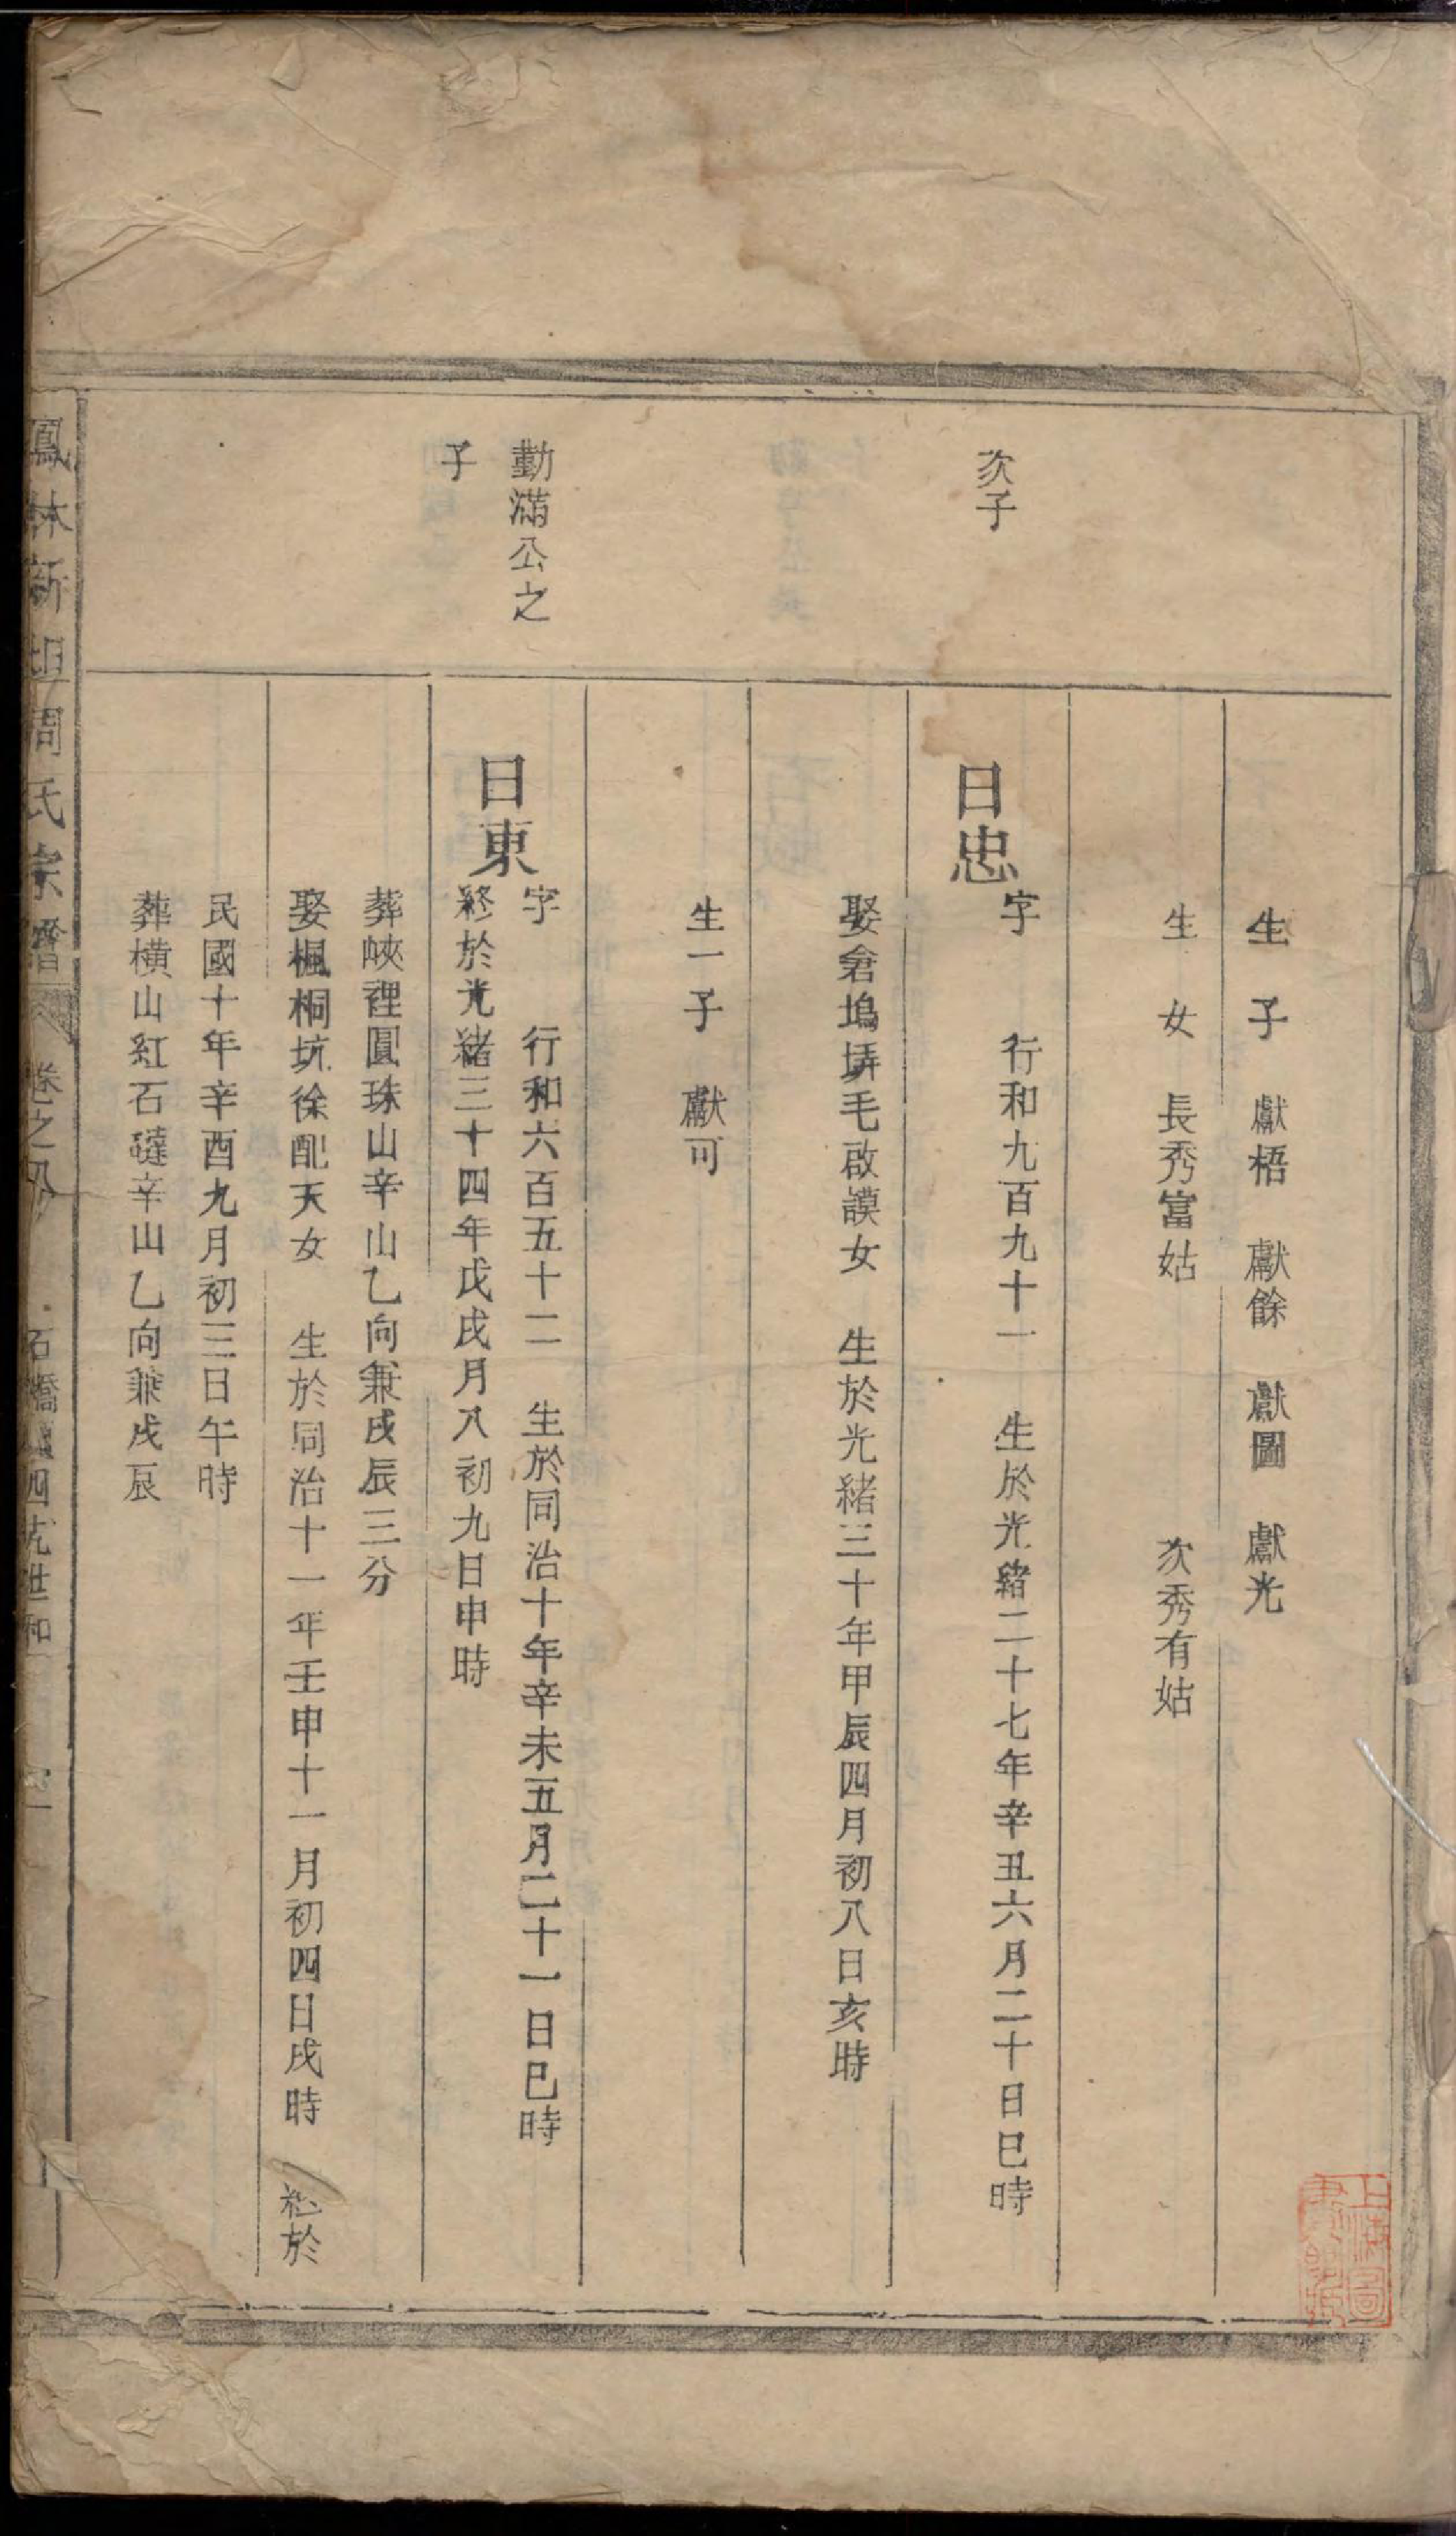 生子 獻梧 獻餘 獻圖 獻光
生女 長秀富姑 次秀有姑
次子
日忠
字 行和九百九十一 生於光緒二十七年辛丑六月二十日巳時
娶倉塢塝毛啟謨女 生於光緒三十年甲辰四月初八日亥時
生一子 獻可
勤滿公之
子
日東
字 行和六百五十二 生於同治十年辛未五月二十一日巳時
終於光緒三十四年戊戌月八初九日申時
葬峽裡圓珠山辛山乙向兼戌辰三分
娶楓桐坑徐配天女 生於同治十一年壬申十一月初四日戌時 於
民國十年辛酉九月初三日午時
葬橫山紅石辛山乙向兼戌辰
鳳林新 周氏宗譜 卷之 石橋 四 世和
上海圖
書館藏